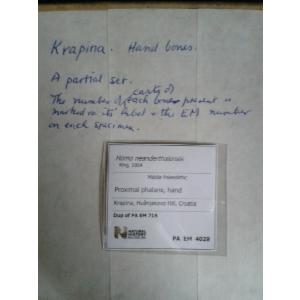 Krapina. Hand bones.
A partial set.
casts of
The number of each bone present is
marked on its label & the EM number
on each specimen.
Homo neanderthalensis
King, 1864
Middle Palaeolithic
Proximal phalanx, hand
Krapina, Hušnjakovo Hill, Croatia
Dup of PA EM 719
NATURAL
HISTORY
MUSEUM
PA EM 4029